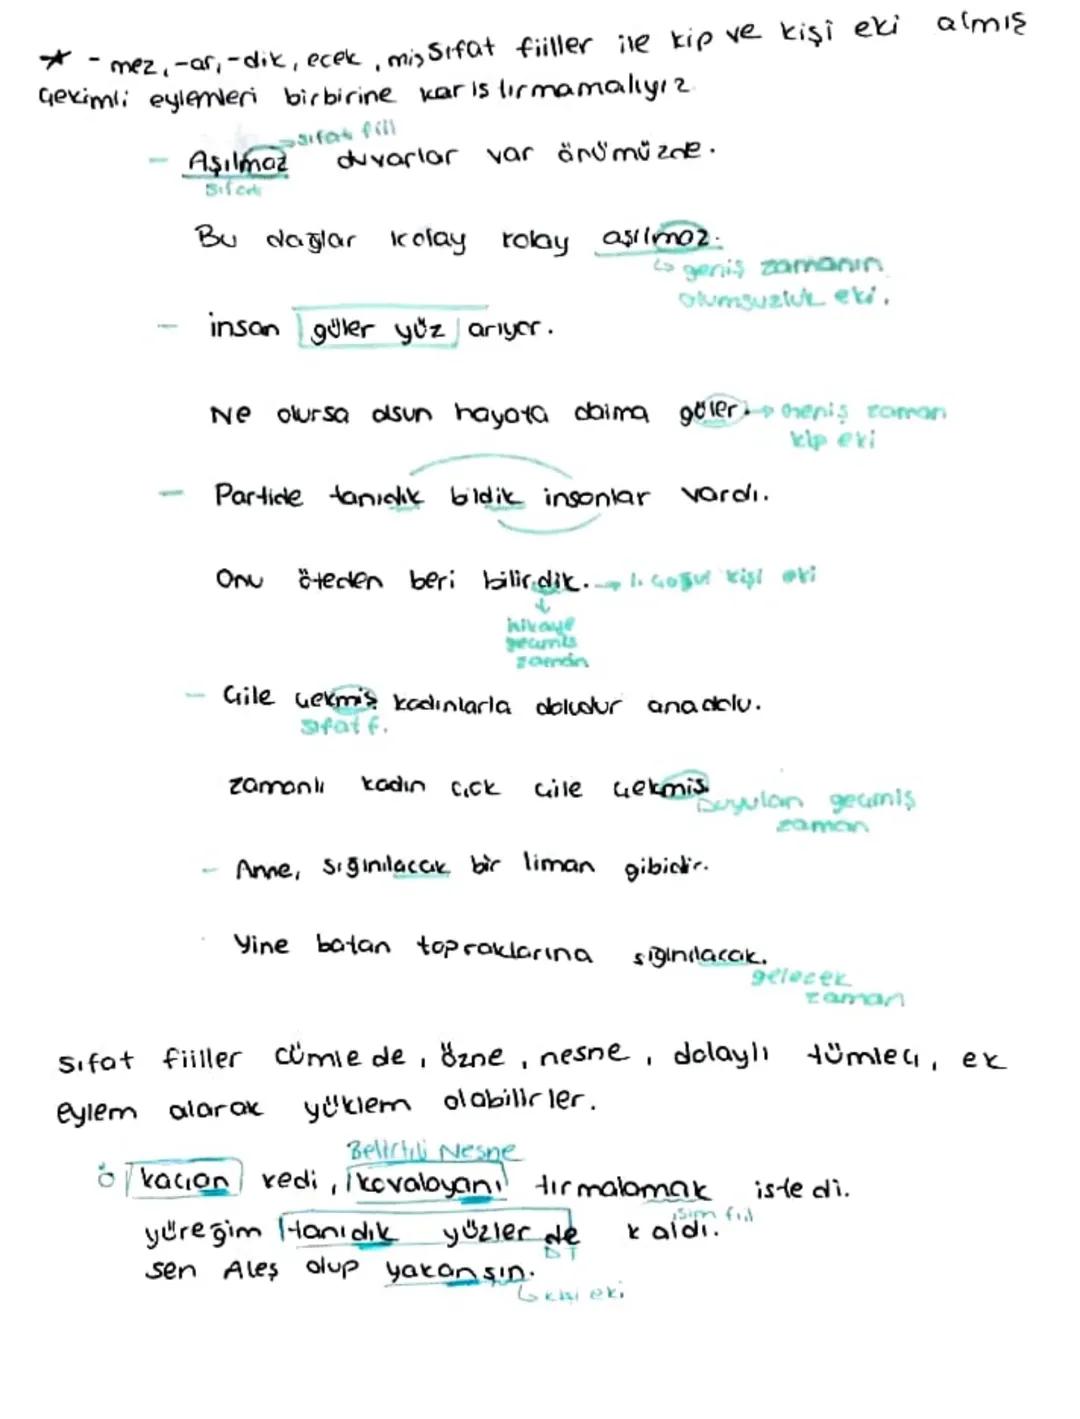 * - mez, -ar, -dik, ecek, miş Sıfat fiiller ile kip ve kişi eki almış
Çekimli eylemleri birbirine karıstırmamalıyız
→ sıfat fiil
- Aşılmaz duvarlar var önümüzde.
Sıfat
Bu dağlar kolay kolay aşılmaz.
↳ geniş zamanın
olumsuzluk eki.
- insan güler yüz arıyor.
Ne olursa olsun hayata daima güler. → Geniş zaman
kip eki
- Partide tanıdık bildik insanlar vardı.
Onu öteden beri bilirdik. → 1. Çoğul kişi eki
↓
hikaye
geçmiş
zaman
- Çile çekmiş kadınlarla doludur anadolu.
sıfat f.
zamanlı kadın çok çile çekmiş.
Duyulan geçmiş
zaman
- Anne, sığınılacak bir liman gibidir.
Yine batan topraklarına sığınılacak.
gelecek
zaman
Sıfat fiiller cümle de, özne, nesne, dolaylı tümleç, ek
eylem alarak yüklem olabilirler.
Belirtili Nesne
Ö kaçan kedi, kovalayanı tırmalamak istedi.
isim fiil
yüreğim tanıdık yüzler de kaldı.
DT
sen Aleş olup yakansın.
↳ kişi eki